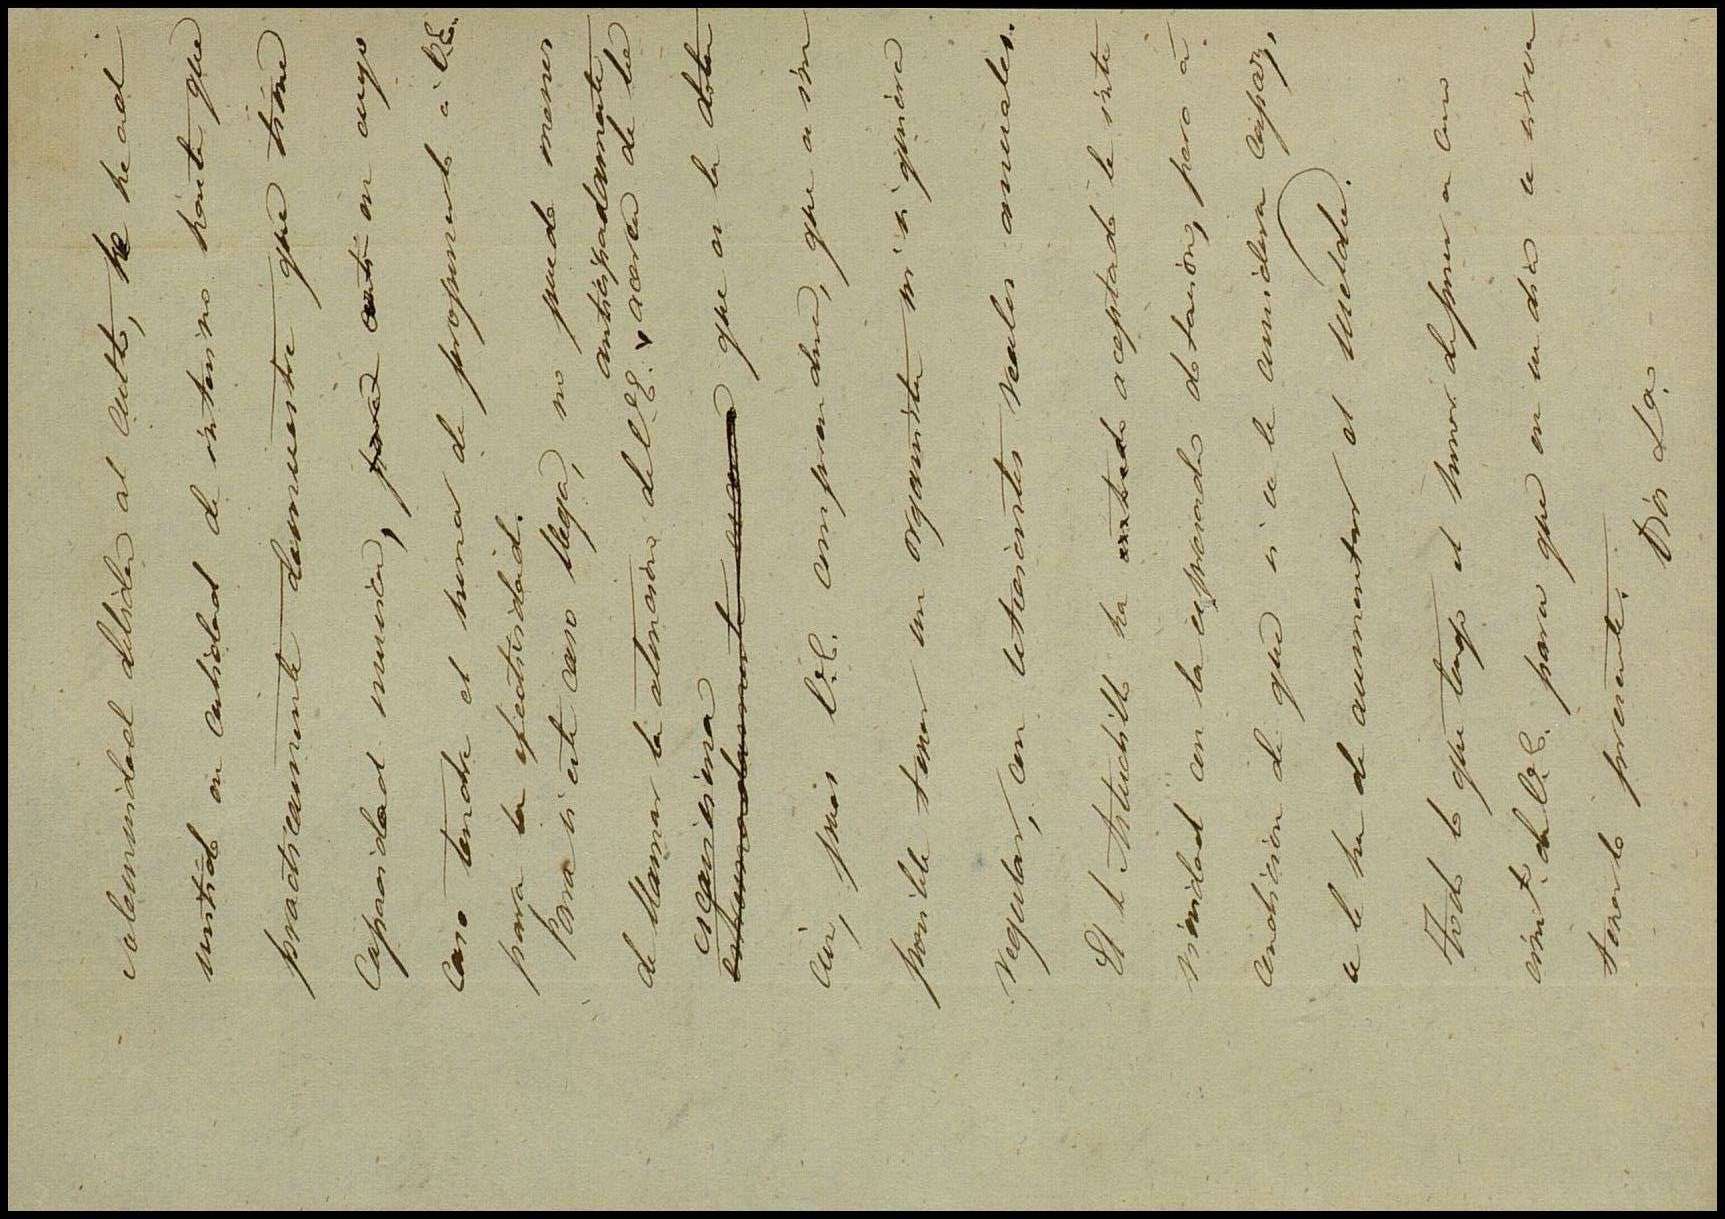 solemnidad debidas al culto, he ad
mitido en calidad de interino hasta que
practicamente demuestre que tiene
capacidad musica, en cuyo
caso tendre el honor de proponerlo á V.E.
para la efectividad.
Para si este caso llega, no puedo menos
de llamar la atencion de V.E. anticipadamente acerca de lo
escasisima que es la dota
cion, pues V.E. comprendera, que es im
posible tener un organista ni si quiera
regular, con letrecientos reales anuales.
El Sr. Astudillo ha aceptado la inte
rinidad con la espresada dotacion, pero á
condicion de que si se le considera capaz,
se le ha de aumentar el sueldo.
Todo lo que tengo el honor de poner en cono
cimto. de V.E. para que en su dia se sirva
tenerlo presente.
Dios &a.